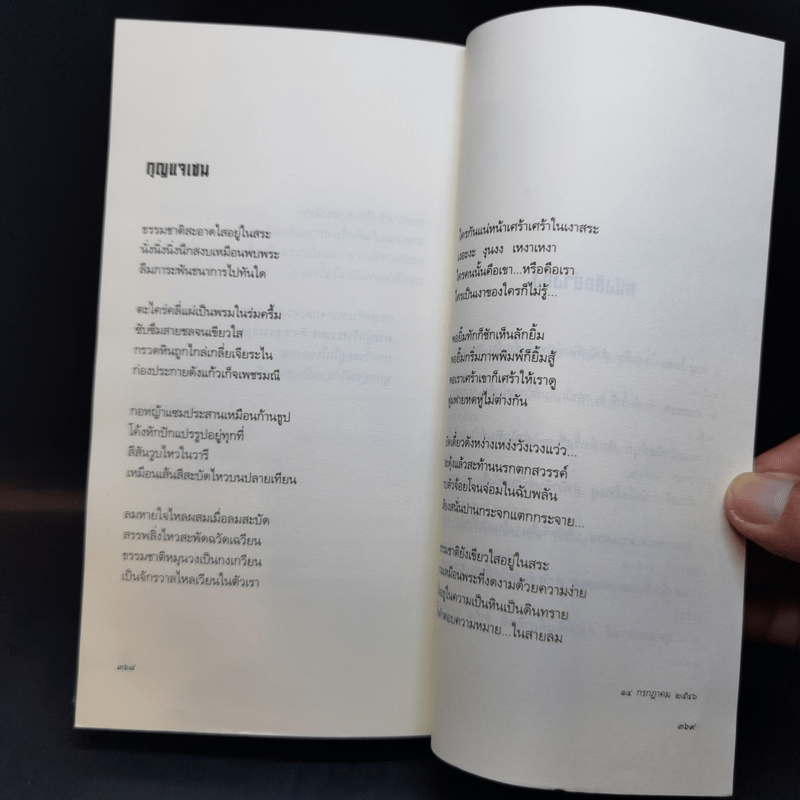 กุญแจเซน
ธรรมชาติสะอาดใสอยู่ในสระ
นั่งนิ่งนิ่งนึกสงบเหมือนพบพระ
ลืมภาระพันธนาการไปทันใด
ตะไคร่คลี่แผ่เป็นพรมในร่มครึ้ม
ซับซึมสายชลจนเขียวใส
กรวดหินถูกไกล่เกลี่ยเจียระไน
ก่องประกายดังแก้วเก็จเพชรมณี
กอหญ้าแซมประสานเหมือนก้านธูป
โค้งหักปักแปรรูปอยู่ทุกที่
สีสันวูบไหวในวารี
เหมือนเส้นสีสะบัดไหวบนปลายเทียน
ลมหายใจไหลผสมเมื่อลมสะบัด
สรรพสิ่งไหวสะพัดฉวัดเฉวียน
ธรรมชาติหมุนวงเป็นกงเกวียน
เป็นจักรวาลไหลเวียนในตัวเรา
๓๖๘
ใครกันแน่หน้าเศร้าเศร้าในเงาสระ
งุนงง เหงาเหงา
ใครคนนั้นคือเขา...หรือคือเรา
ใครเป็นเงาของใครก็ไม่รู้...
พอยิ้มทักก็ชักเห็นลักยิ้ม
พอยิ้มกริ่มภาพพิมพ์ก็ยิ้มสู้
พอเราเศร้าเขาก็เศร้าให้เราดู
ทดหู่ไม่ต่างกัน
เดี่ยวดังหง่างเหง่งวังเวงแว่ว...
สะดุ้งแล้วสะท้านนรกตกสวรรค์
ตัวจ้อยโจนจ่อมในฉับพลัน
เสียงสนั่นปานกระจกแตกกระจาย...
ธรรมชาติยังเขียวใสอยู่ในสระ
เหมือนพระที่งดงามด้วยความง่าย
อยู่ในความเป็นหินเป็นดินทราย
ตอบความหมาย...ในสายลม
๑๔ กรกฎาคม ๒๕๔๖
๓๖๙